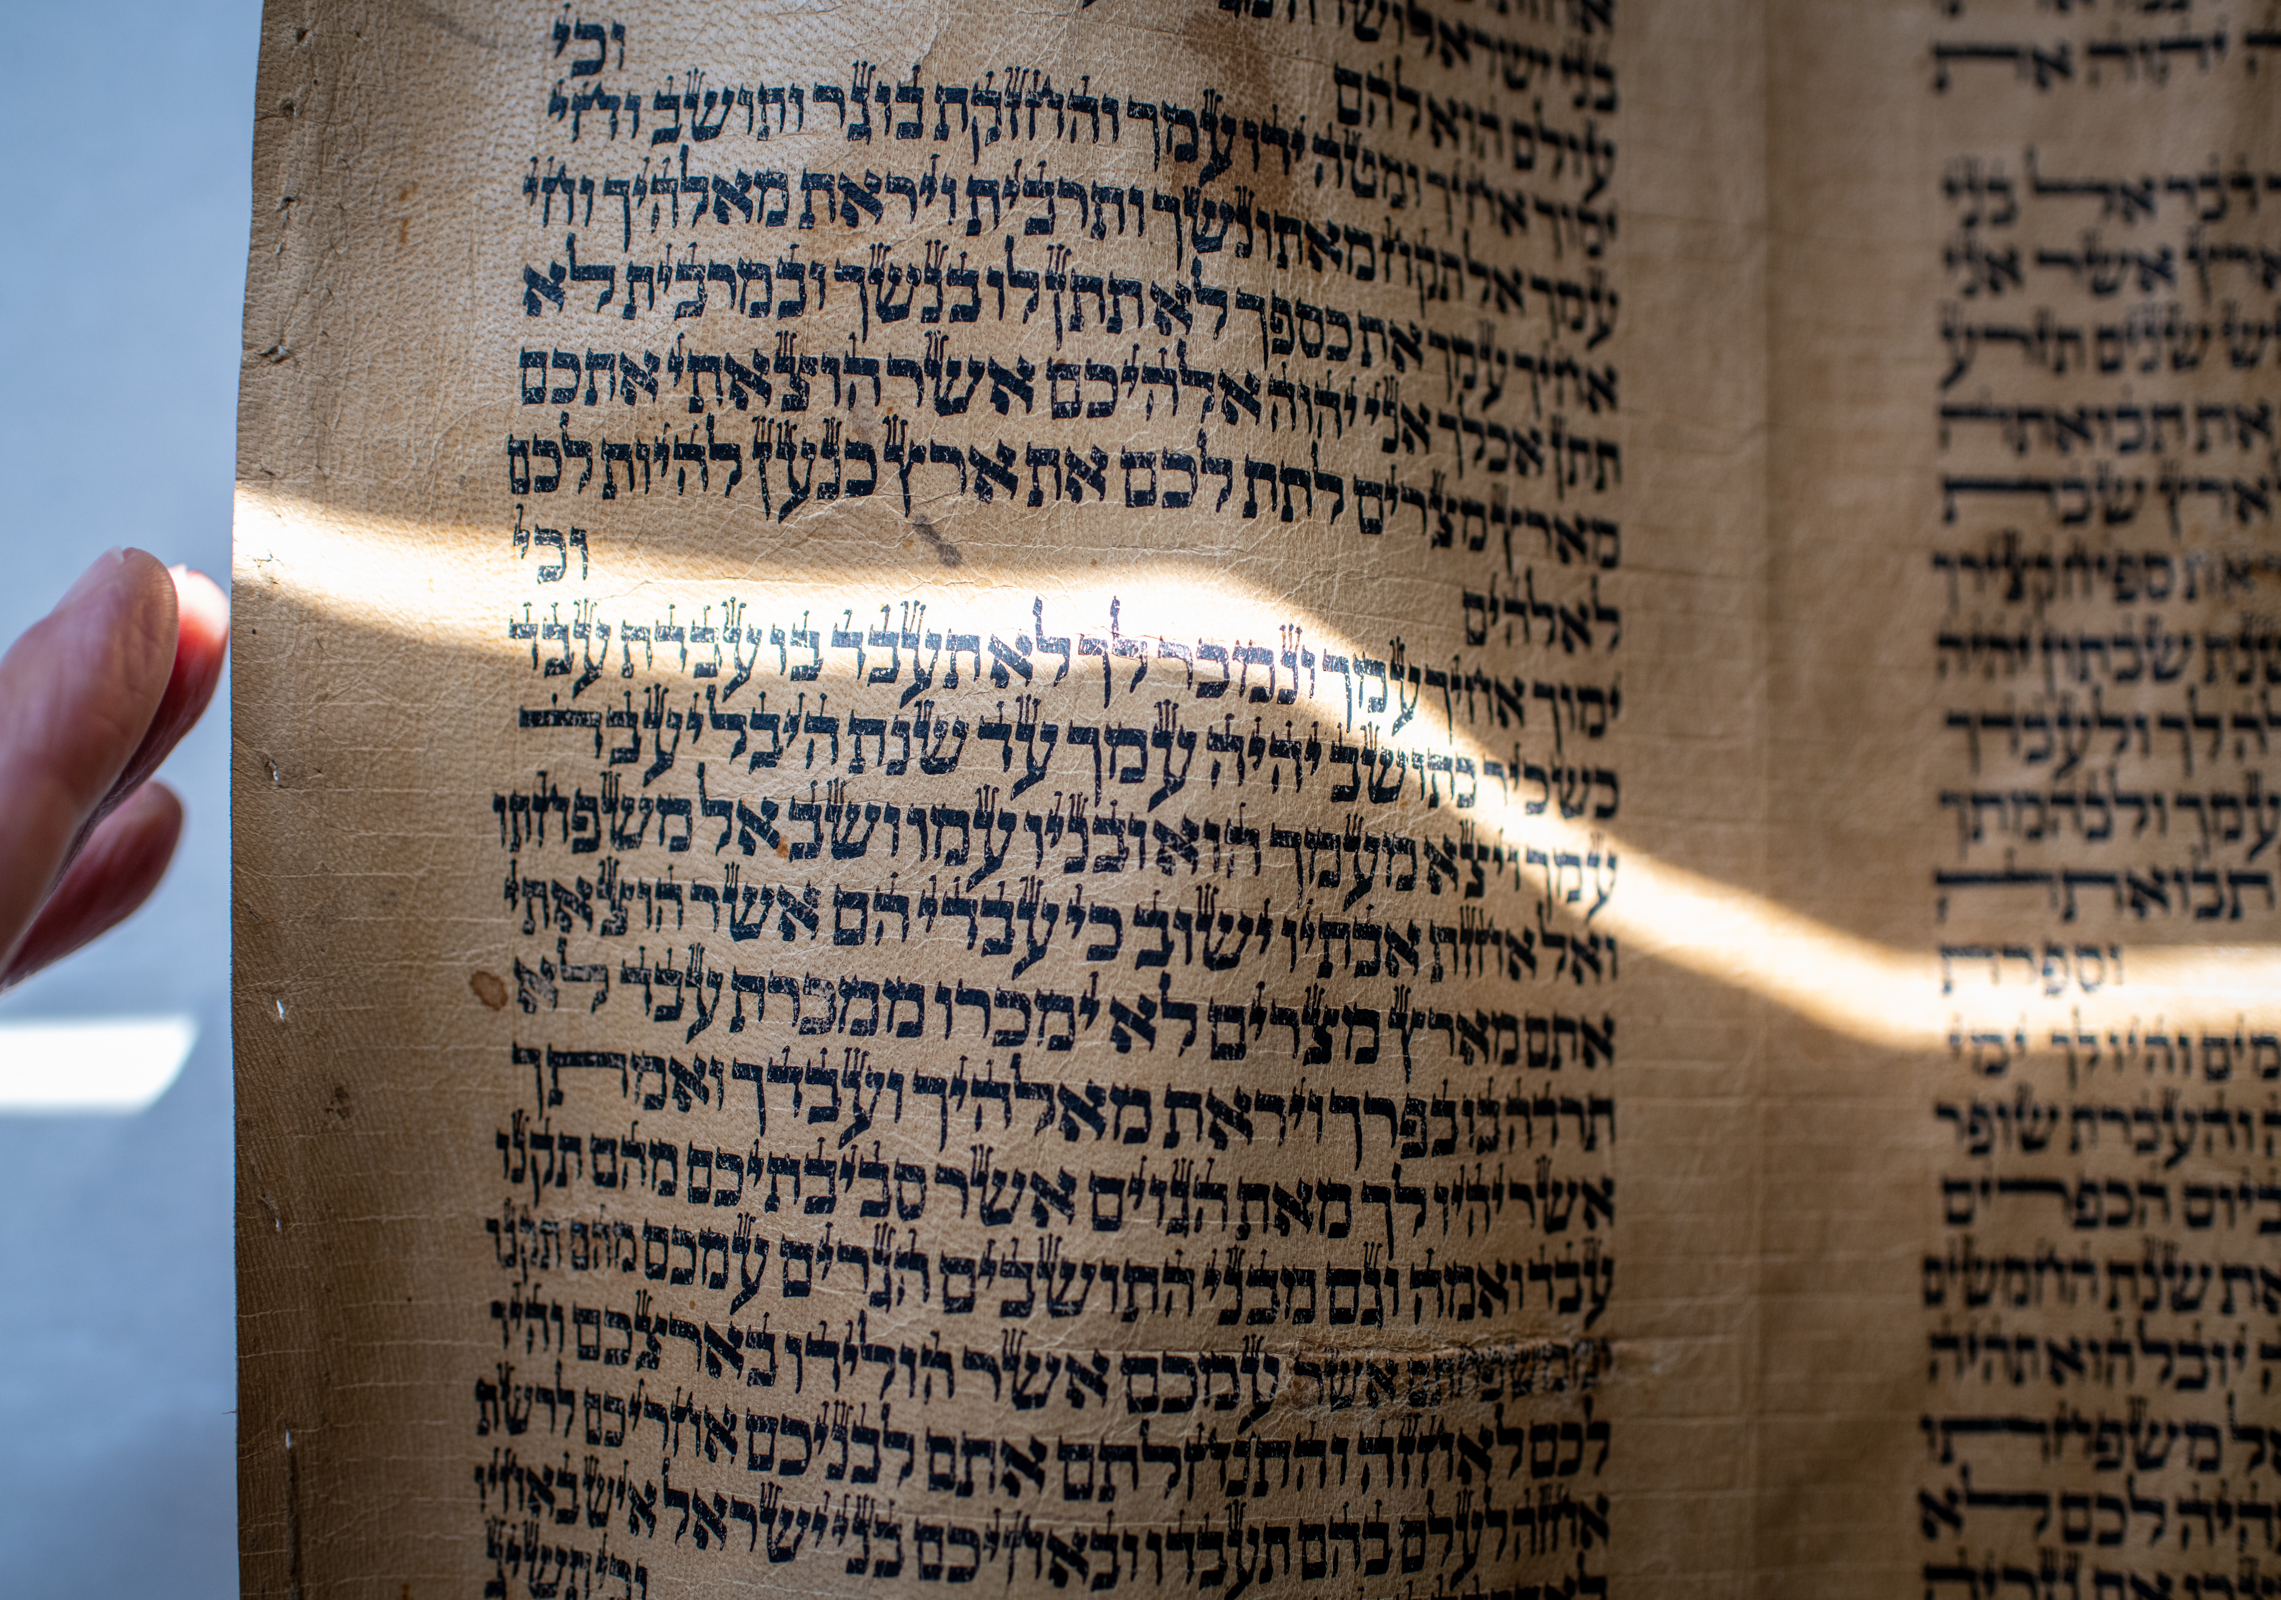 יהוה את
דבר אל בני
ארץ אשר אני
שש שנים תזרע
את תבואתה
ארץ שבת
את ספיח קצירך
שנת שבתון יהיה
לך ולעבדך
עמך ולבהמתך
תבואתה
וספרת
והיו לך ימי
והעברת שופר
ביום הכפרים
את שנת החמשים
יובל הוא תהיה
אל משפחתו
תהיה לכם לא
בני ישראל ושדה
עולם הוא להם וכי
ימוך אחיך ומטה ידו עמך והחזקת בו גר ותושב וחי
עמך אל תקח מאתו נשך ותרבית ויראת מאלהיך וחי
אחיך עמך את כספך לא תתן לו בנשך ובמרבית לא
תתן אכלך אני יהוה אלהיכם אשר הוצאתי אתכם
מארץ מצרים לתת לכם את ארץ כנען להיות לכם
לאלהים וכי
ימוך אחיך עמך ונמכר לך לא תעבד בו עבדת עבד
כשכיר כתושב יהיה עמך עד שנת היבל יעבד
עמך ויצא מעמך הוא ובניו עמו ושב אל משפחתו
ואל אחזת אבתיו ישוב כי עבדי הם אשר הוצאתי
אתם מארץ מצרים לא ימכרו ממכרת עבד לא
תרדה בו בפרך ויראת מאלהיך ועבדך ואמתך
אשר יהיו לך מאת הגוים אשר סביבתיכם מהם תקנו
עבד ואמה וגם מבני התושבים הגרים עמכם מהם תקנו
וממשפחתם אשר עמכם אשר הולידו בארצכם והיו
לכם לאחזה והתנחלתם אתם לבניכם אחריכם לרשת
אחזה לעלם בהם תעבדו ובאחיכם בני ישראל איש באחיו
וכי תשיג